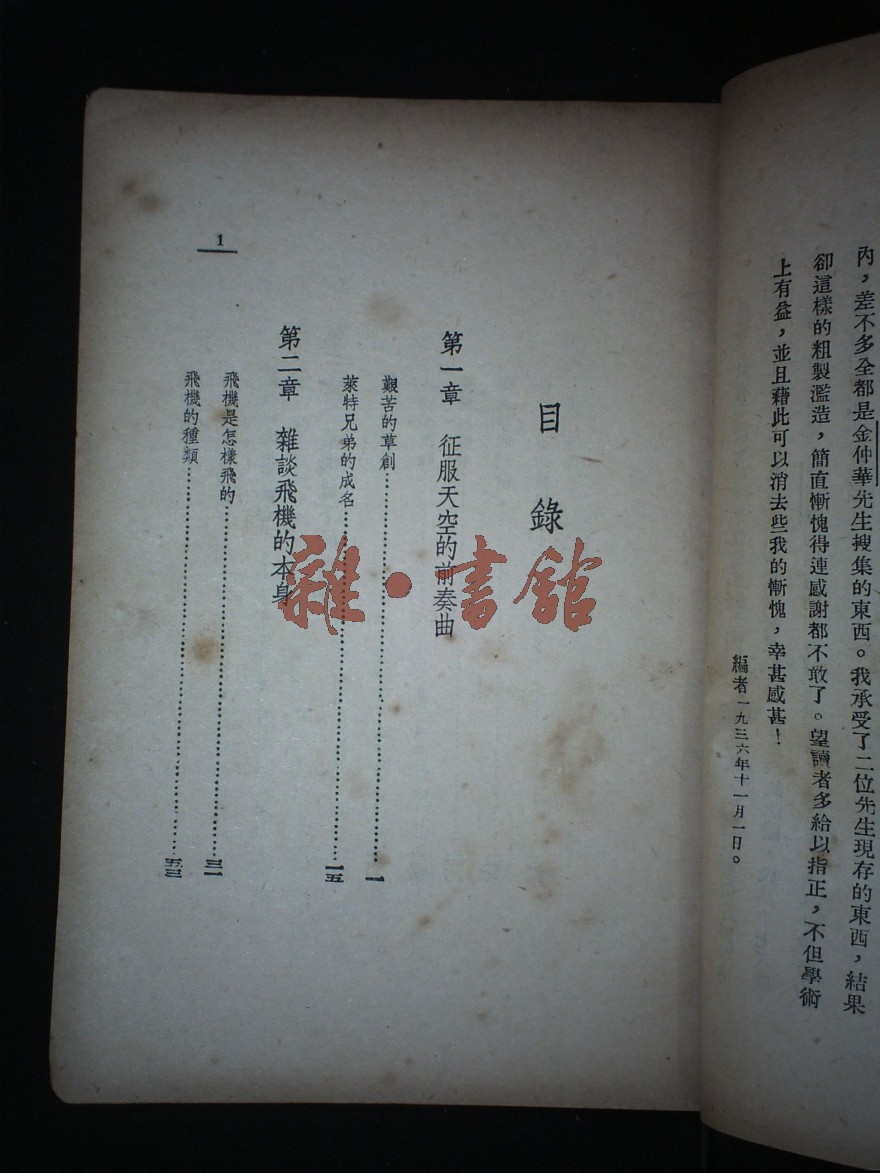 內，差不多全都是金仲華先生搜集的東西。我承受了二位先生現存的東西，結果
卻這樣的粗製濫造，簡直慚愧得連感謝都不敢了。望讀者多給以指正，不但學術
上有益，並且藉此可以消去些我的慚愧，幸甚感甚！
編者一九三六年十一月一日。
目錄
第一章 征服天空的前奏曲
艱苦的草創……一
萊特兄弟的成名……一五
第二章 雜談飛機的本身
飛機是怎樣飛的……三一
飛機的種類……五三
1
雜·書館